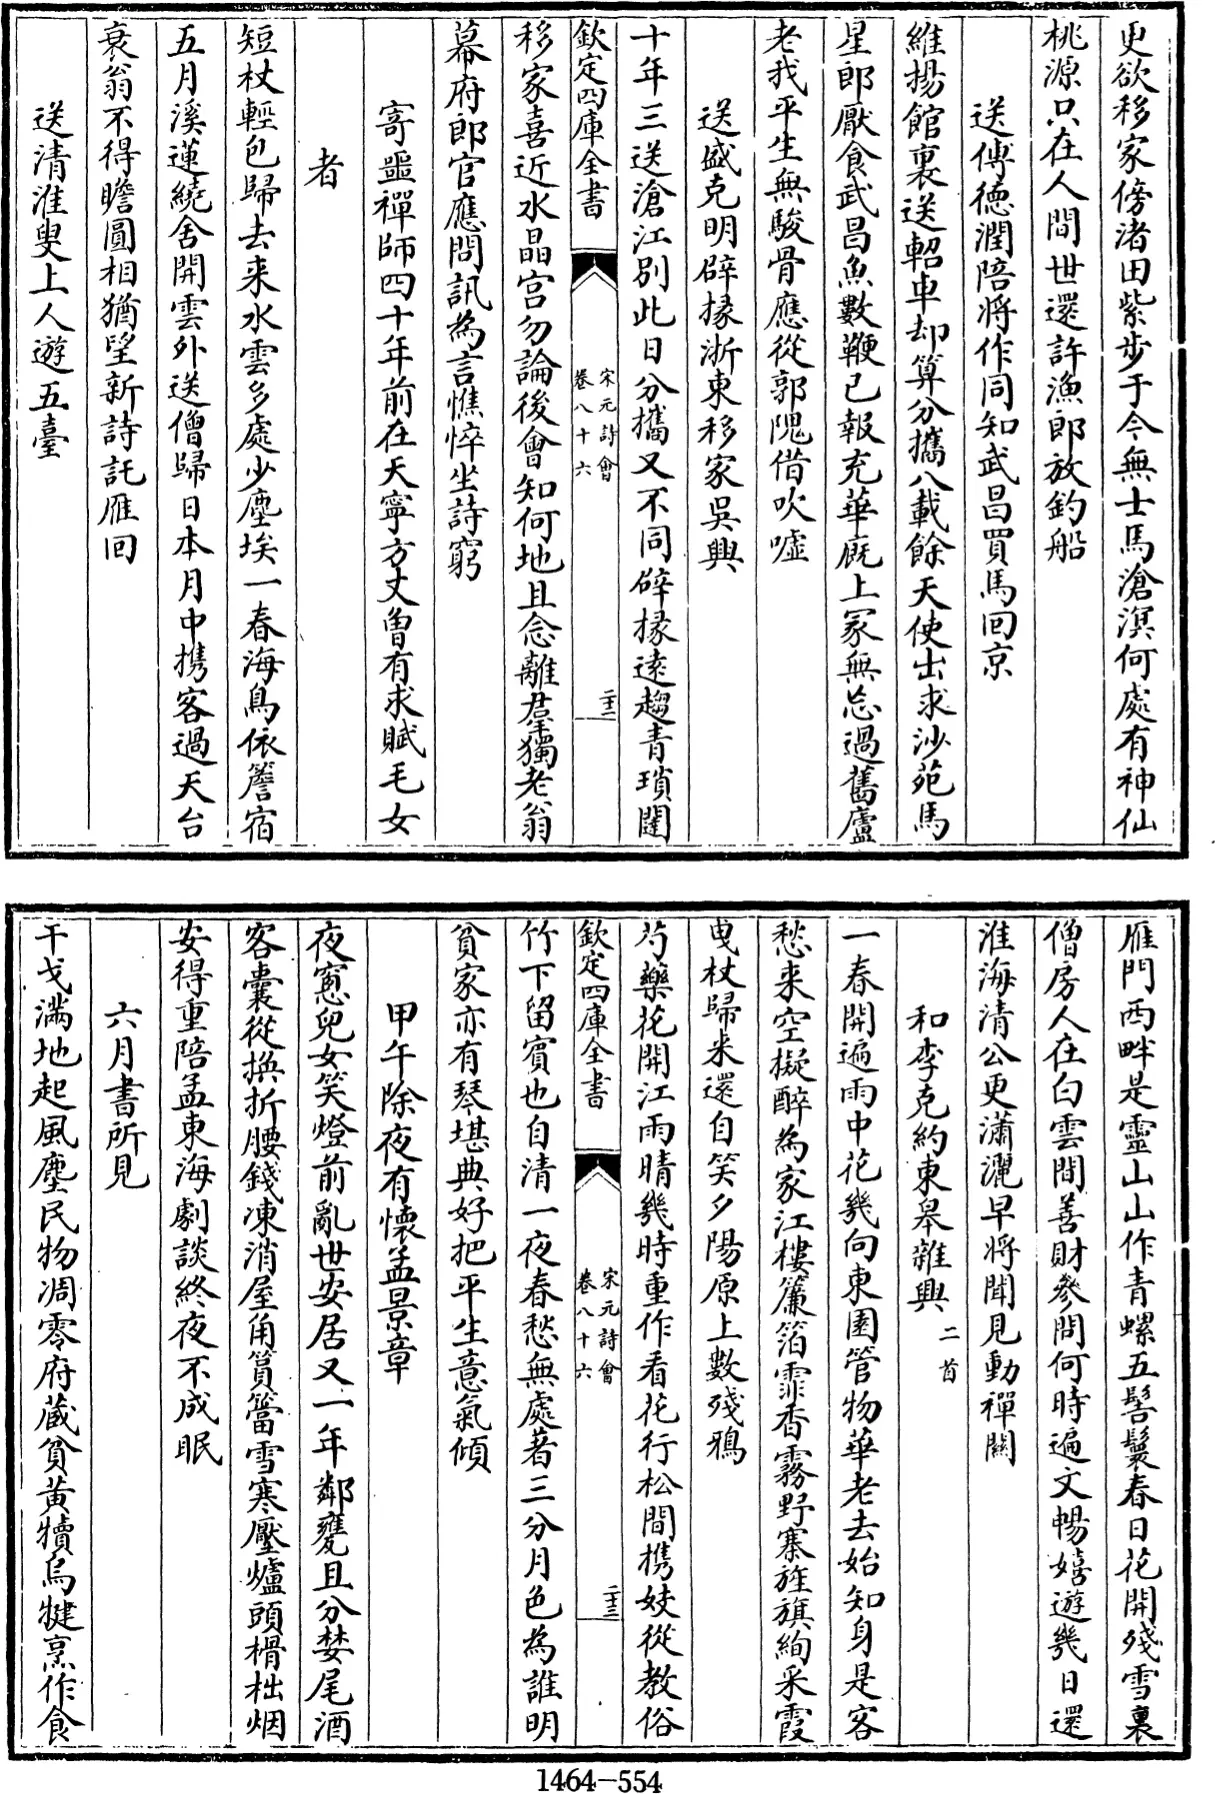 更欲移家傍渚田紫步于今無士馬滄溟何處有神仙
桃源只在人間世還許漁郎放釣船
送傅德潤陪將作同知武昌買馬回京
維揚館裏送軺車却算分攜八載餘天使出求沙苑馬
星郎厭食武昌魚數鞭已報充華廐上冢無忘過舊廬
老我平生無駿骨應從郭隗借吹噓
送盛克明辟掾浙東移家吳興
十年三送滄江別此日分攜又不同辟掾遠趨青瑣闥
欽定四庫全書
宋元詩會
卷八十六
二十二
移家喜近水晶宮勿論後會知何地且念離羣獨老翁
幕府郎官應問訊為言憔悴坐詩窮
寄噩禪師四十年前在天寧方丈曽有求賦毛女
者
短杖輕包歸去来水雲多處少塵埃一春海鳥依簷宿
五月溪蓮繞舍開雲外送僧歸日本月中携客過天台
衰翁不得瞻圓相猶望新詩託雁回
送清淮叟上人遊五臺
雁門西畔是靈山山作青螺五髻鬟春日花開殘雪裏
僧房人在白雲間善財參問何時遍文暢嬉遊幾日還
淮海清公更瀟灑早將聞見動禪關
和李克約東皋雜興二首
一春開遍雨中花幾向東園管物華老去始知身是客
愁来空擬醉為家江樓簾箔霏香霧野寨旌旗絢采霞
曳杖歸来還自笑夕陽原上數殘鴉
芍藥花開江雨晴幾時重作看花行松間携妓從教俗
欽定四庫全書
宋元詩會
卷八十六
二十三
竹下留賓也自清一夜春愁無處著三分月色為誰明
貧家亦有琴堪典好把平生意氣傾
甲午除夜有懷孟景章
夜窻兒女笑燈前亂世安居又一年鄰甕且分婪尾酒
客囊從換折腰錢凍消屋角篔簹雪寒壓爐頭榾柮烟
安得重陪孟東海劇談終夜不成眠
六月書所見
干戈滿地起風塵民物凋零府藏貧黄犢烏犍烹作食
1464-554